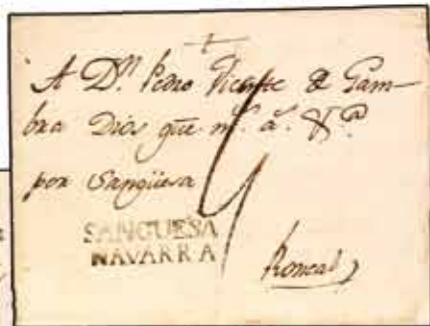 A D.ⁿ Pedro Vicente de Gam-
bra Dios gũe m.ˢ a.ˢ &ª
por Sangüesa
SANGUESA
NAVARRA
Roncal